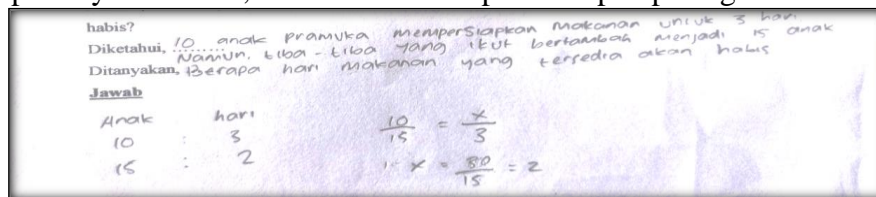 habis?
Diketahui, 10 anak pramuka mempersiapkan makanan untuk 3 hari
Namun, tiba-tiba yang ikut bertambah menjadi 15 anak
Ditanyakan, Berapa hari makanan yang tersedia akan habis
Jawab
Anak hari
10 : 3
15 : 2
10/15 = x/3
x = 30/15 = 2